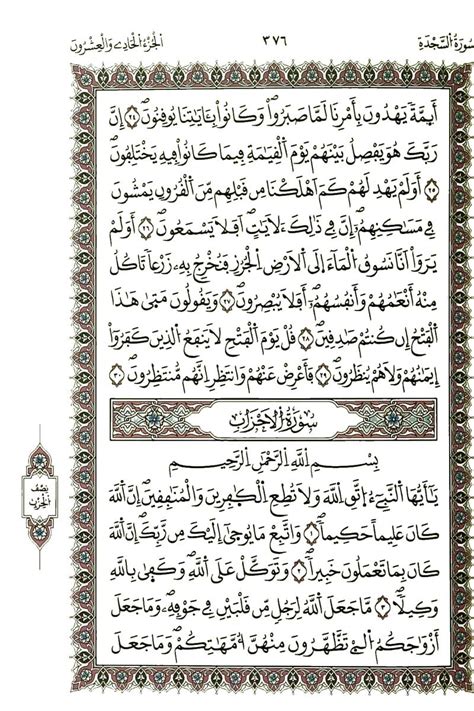 سُورَةُ السَّجْدَةِ ٣٧٦ الْجُزْءُ الْحَادِي وَالْعِشْرُونَ
أَيِمَّةً يَهْدُونَ بِأَمْرِنَا لَمَّا صَبَرُواْ وَكَانُواْ بِـَٔايَٰتِنَا يُوقِنُونَ ٢٤ إِنَّ
رَبَّكَ هُوَ يَفْصِلُ بَيْنَهُمْ يَوْمَ اَلْقِيَٰمَةِ فِيمَا كَانُواْ فِيهِ يَخْتَلِفُونَ
٢٥ أَوَلَمْ يَهْدِ لَهُمْ كَمَ اَهْلَكْنَا مِن قَبْلِهِم مِّنَ اَلْقُرُونِ يَمْشُونَ
فِي مَسَٰكِنِهِمُۥٓ إِنَّ فِي ذَٰلِكَ لَأٓيَٰتٍ اَفَلَا يَسْمَعُونَ ٢٦ أَوَلَمْ
يَرَوَاْ اَنَّا نَسُوقُ اُلْمَآءَ إِلَى اَلْأَرْضِ اِلْجُرُزِ فَنُخْرِجُ بِهِۦ زَرْعاً تَاكُلُ
مِنْهُ أَنْعَٰمُهُمْ وَأَنفُسُهُمُۥٓ أَفَلَا يُبْصِرُونَ ٢٧ وَيَقُولُونَ مَتَىٰ هَٰذَا
اَلْفَتْحُ إِن كُنتُمْ صَٰدِقِينَ ٢٨ قُلْ يَوْمَ اَلْفَتْحِ لَا يَنفَعُ اُلذِينَ كَفَرُوٓاْ
إِيمَٰنُهُمْ وَلَا هُمْ يُنظَرُونَ ٢٩ فَأَعْرِضْ عَنْهُمْ وَانتَظِرِ اِنَّهُم مُّنتَظِرُونَ ٣٠
سُورَةُ الْأَحْزَابِ
بِسْمِ اِللَّهِ اِلرَّحْمَٰنِ اِلرَّحِيمِ
يَٰٓأَيُّهَا اَلنَّبِيٓءُ اتَّقِ اِللَّهَ وَلَا تُطِعِ اِلْكَٰفِرِينَ وَالْمُنَٰفِقِينَ إِنَّ اَللَّهَ
كَانَ عَلِيماً حَكِيماً ١ وَاتَّبِعْ مَا يُوحَىٰٓ إِلَيْكَ مِن رَّبِّكَ إِنَّ اَللَّهَ
كَانَ بِمَا تَعْمَلُونَ خَبِيراً ٢ وَتَوَكَّلْ عَلَى اَللَّهِ وَكَفَىٰ بِاللَّهِ
وَكِيلاً ٣ مَّا جَعَلَ اَللَّهُ لِرَجُلٍ مِّن قَلْبَيْنِ فِي جَوْفِهِۦ وَمَا جَعَلَ
أَزْوَٰجَكُمُ اُلَّٰٓے تَظَّهَّرُونَ مِنْهُنَّ أُمَّهَٰتِكُمْ وَمَا جَعَلَ
نِصْفُ
الْحِزْبِ